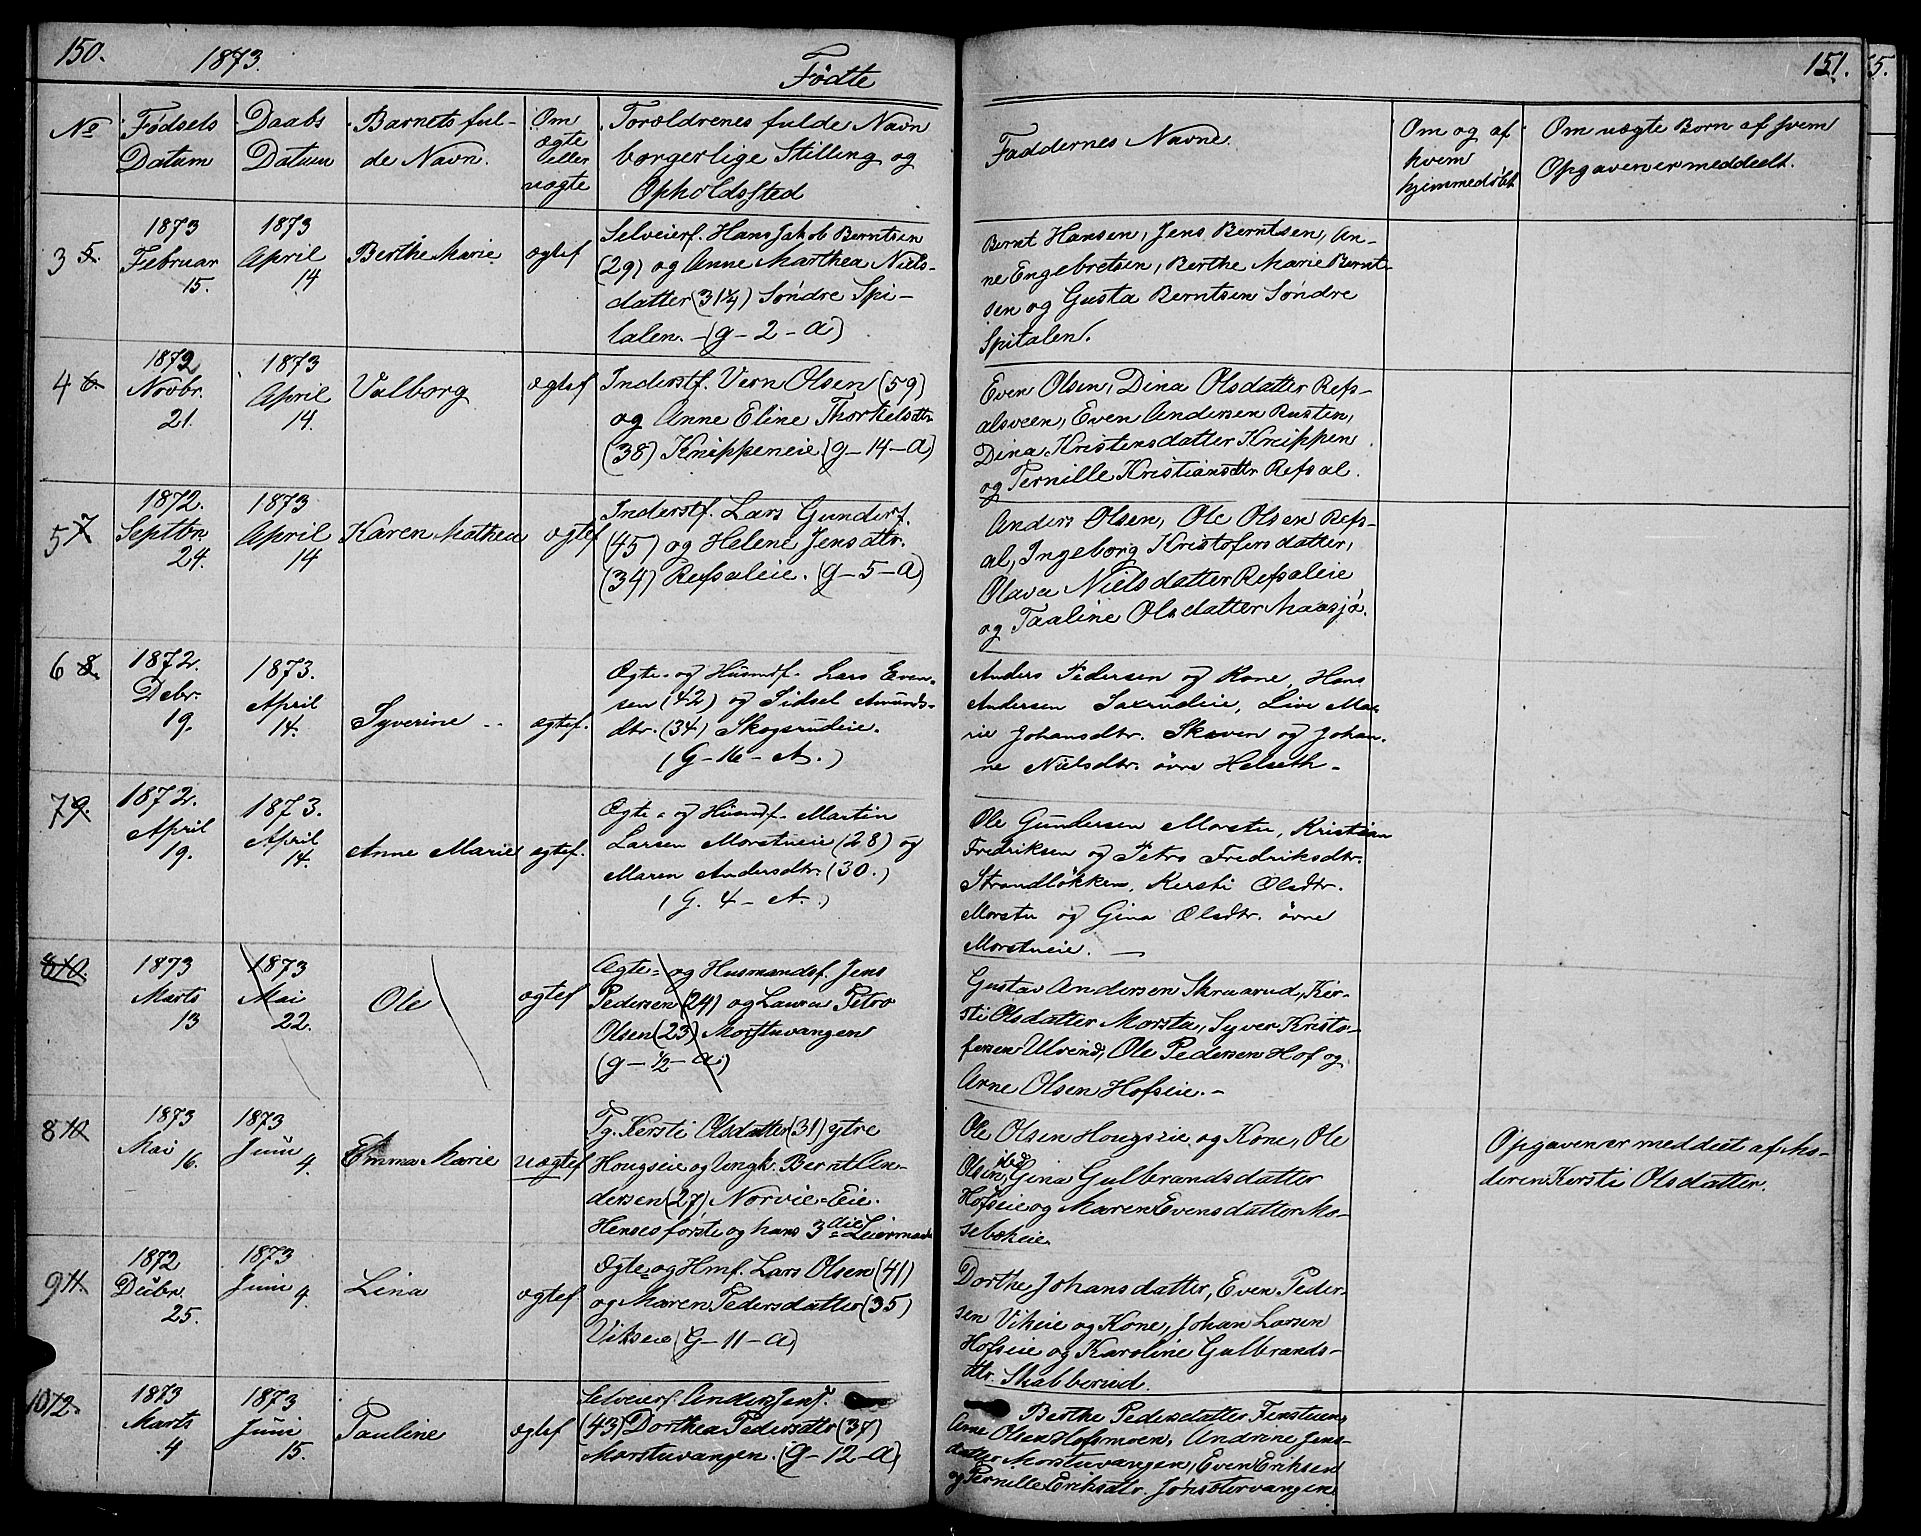 150.
1873.
Fødte
151.
5.
No
Fødsels
Datum
Daabs
Datum
Barnets ful-
de Navn.
Om
ægte
eller
uægte
Forældrenes fulde Navn
borgerlige Stilling og
Opholdssted
Faddernes Navne.
Om og af
hvem
hjemmedøbt
Om uægte Børn af hvem
Opgaven er meddeelt.
3 5.
1873
Februar
15.
1873
April
14
Berthe Marie
ægtef
Selveierf. Hans Jakob Berntsen
(29) og Anne Marthea Niels-
datter (31¼) Søndre Spi-
talen. - (g - 2 - a)
Bernt Hansen, Jens Berntsen, An-
ne Engebretsen, Berthe Marie Bernt-
sen og Gusta Berntsen Søndre
Spitalen.
4 6.
1872
Novbr.
21.
1873
April
14.
Valborg
ægtef
Inderstf. Vern Olsen (59)
og Anne Eline Thorkelsdtr
(38) Knippeneie (g - 14 - a)
Even Olsen, Dina Olsdatter Refs-
alsveen, Even Andersen Rusten,
Dina Kristensdatter Knippen
og Pernille Kristiansdtr Refsal.
5 7
1872.
Septbr.
24.
1873
April
14
Karen Mathea
ægtef
Inderstf. Lars Gunderf.
(45) og Helene Jensdtr.
(34) Refsaleie. (g - 5 - a)
Anders Olsen, Ole Olsen Refs-
al, Ingeborg Kristofersdatter,
Olava Nielsdatter Refsaleie
og Paaline Olsdatter Maasjø.
6 8.
1872.
Debr.
19.
1873.
April
14.
Syverine
ægtef.
Ægte- og Husmdf. Lars Even-
sen (42) og Sidsel Amunds-
dtr. (34) Skogsrudeie.
(G - 16 - A.)
Anders Pedersen og Kone, Hans
Andersen Saxrudeie, Live Ma-
rie Johansdtr. Skaven og Johan-
ne Nielsdtr. øvre Helseth -
7 9.
1872.
April
19.
1873.
April
14.
Anne Marie
egtef.
Ægte- og Husmdf. Martin
Larsen Morstueie (28) og
Maren Andersdtr. (30.)
(G. 4 - A.)
Ole Gundersen Morstu, Kristian
Fredriksen og Petra Fredriksdtr.
Strandløkken, Kersti Olsdtr.
Morstu og Gina Olsdtr. øvre
Morstueie. -
8 10.
1873
Marts
13
1873
Mai
22.
Ole
ægtef
Ægte- og Husmandsf. Jens
Pedersen (24) og Laura Petra
Olsen (23) Morstuvangen
(g - ½ - a.)
Gustav Andersen Skruarud, Ker-
sti Olsdatter Morsta, Syver Kristo-
fersen Ulvind, Ole Pedersen Hof og
Arne Olsen Hofseie. -
8 10
1873
Mai
16.
1873
Juni
4.
Emma Marie
uægtef
Pg. Kersti Olsdatter (31) ytre
Hougseie og Ungk. Bernt An-
dersen (27) Norvie-Eie.
Hendes første og hans 3die Leiermaal
Ole Olsen Hougseie og Kone, Ole
Olsen ibd, Gina Gulbrandsdatter
Hofseie og Maren Evensdatter Mo-
sebekeie.
Opgaven er meddeet af Mo-
deren Kersti Olsdatter.
9 11.
1872
Debr.
25.
1873
Juni
4.
Lina
ægtef
Ægte og Hmf. Lars Olsen (41)
og Maren Pedersdatter (35)
Vikseie (G - 11 - a)
Dorthe Johansdatter, Even Peder-
sen Vikeie og Kone, Johan Larsen
Hofseie og Karoline Gulbrands-
dtr. Skabberud.
10 12.
1873
Marts
4
1873
Juni
15.
Pauline
ægtef
Selveierf. Anders Jens.
(43) Dorthea Pedersdtr (37)
Morstuvangen. (g - 12 - a)
Berthe Pedersdatter Fenstuen,
Arne Olsen Hofsmoen, Andrine Jens-
datter Morstuvangen, Even Eriksen
og Pernille Eriksdtr.